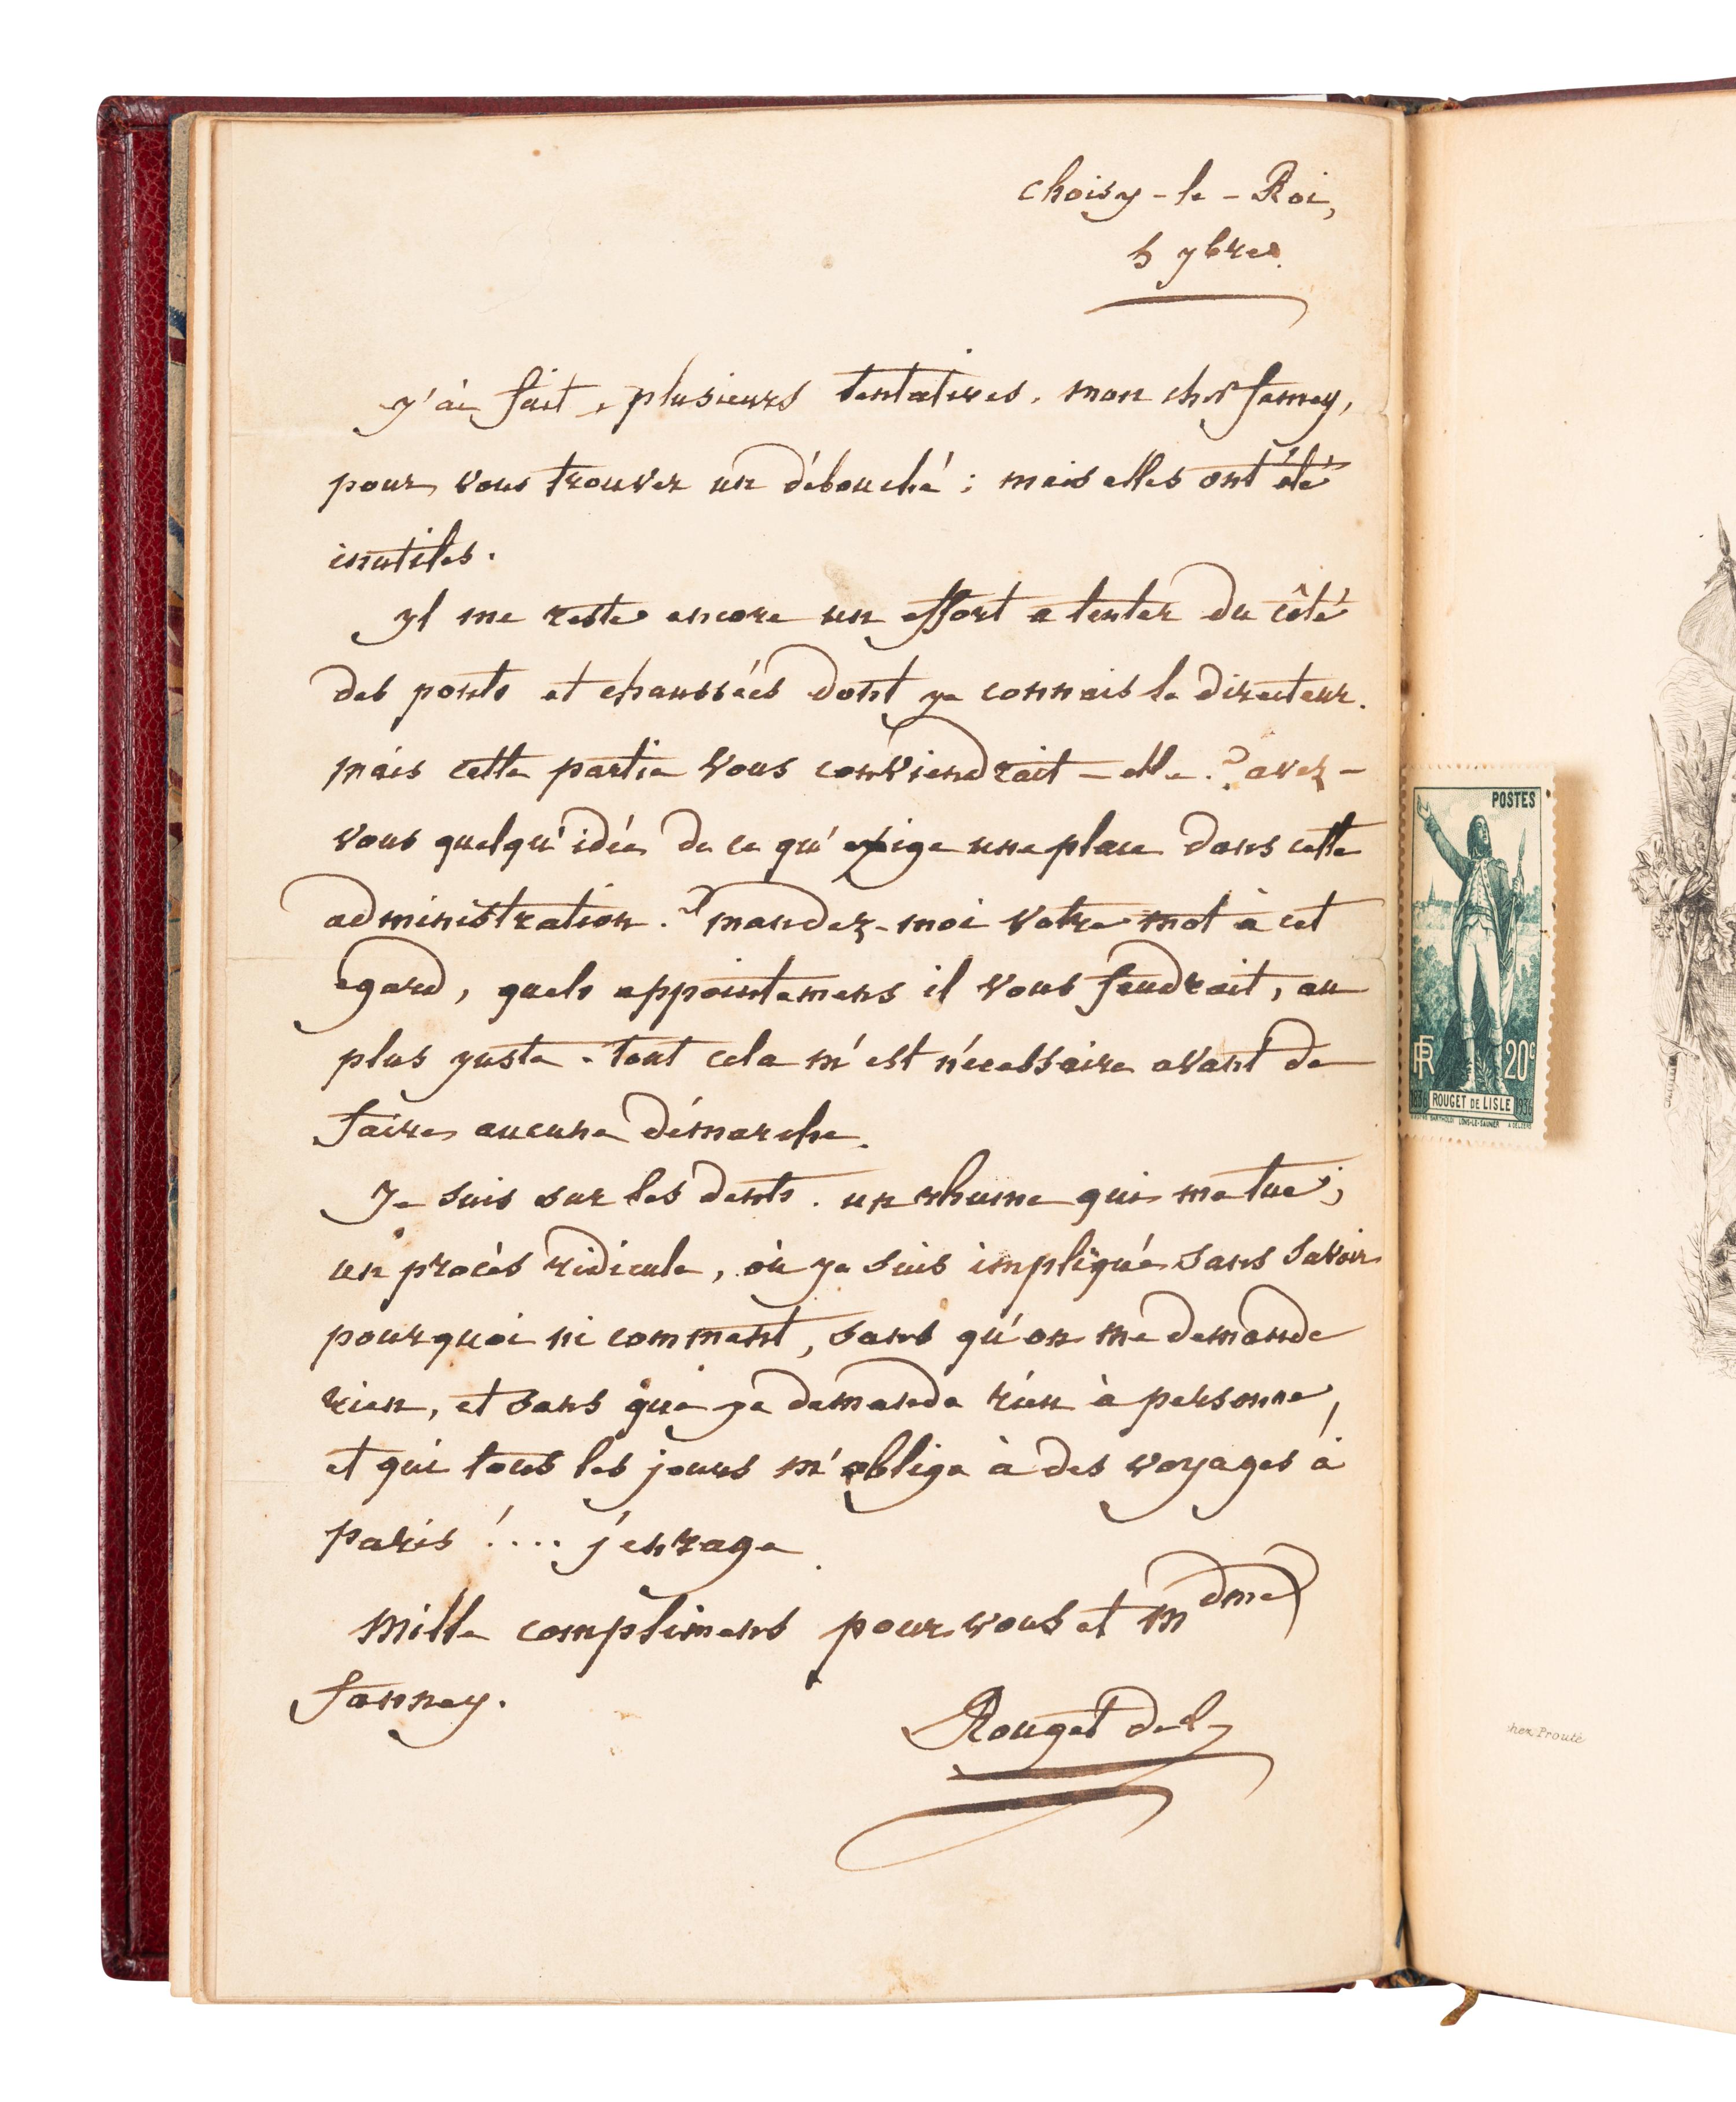 choisy-le-Roi,
5 7bre.
y'ai fait, plusieurs tentatives, mon cher fanney,
pour vous trouver un débouché; mais elles ont été
inutiles.
yl me reste encore un effort a tenter du côté
des ponts et chaussées dont ye connais le directeur.
mais cette partie vous conviendrait-elle.? avez-
vous quelqu'idée de ce qu'exige une place dans cette
administration.? mandez-moi votre mot à cet
egard, quels appointemens il vous faudrait, au
plus yuste. tout cela m'est nécessaire avant de
faire aucune démarche.
Je suis sur les dents. un rhume qui me tue;
un procès ridicule, où ye suis impliqué sans savoir
pourquoi ni comment, sans qu'on me demande
rien, et sans que ye demande rien à personne,
et qui tous les jours m'oblige à des voyages à
paris!.... j'enrage.
Mille complimens pour vous et mdme
fanney.
Rouget de L
POSTES
RF
20c
1836 ROUGET DE LISLE 1936
LONS-LE-SAUNIER
chez Prouté